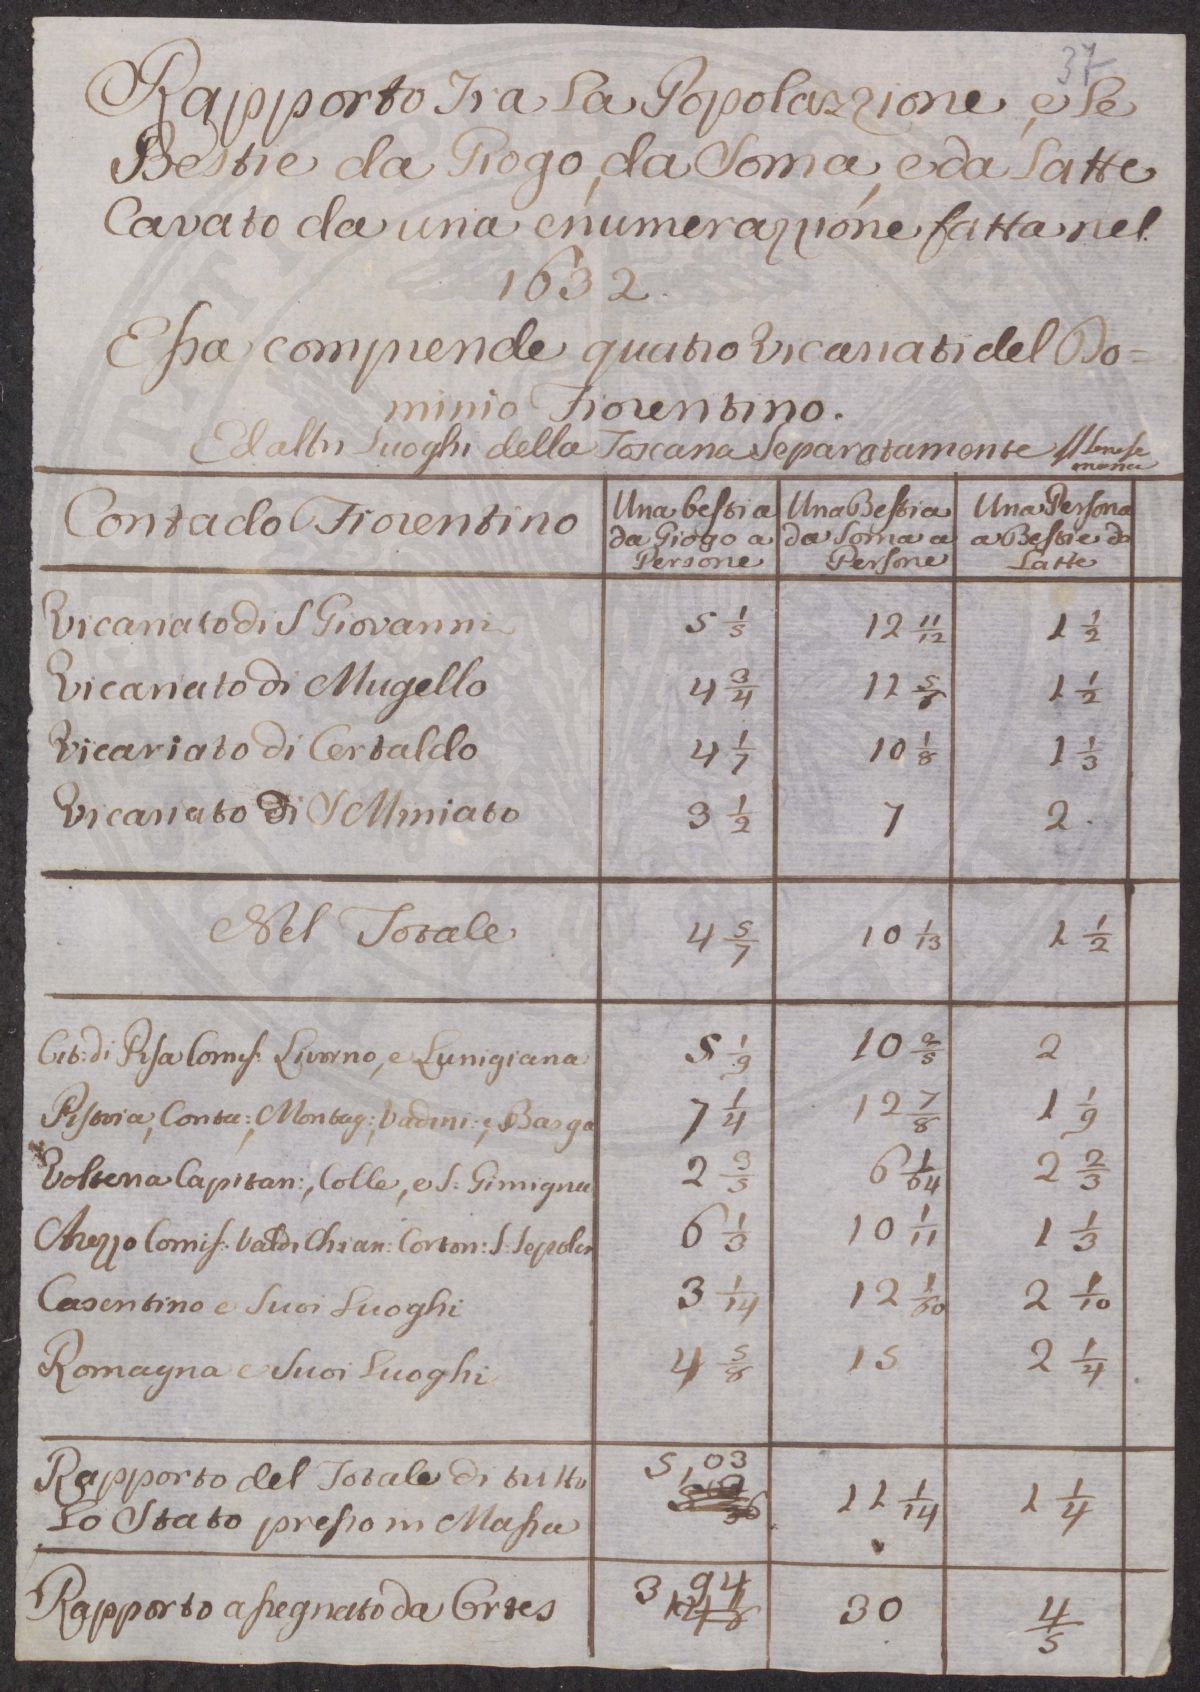 37
Rapporto Tra La Popolazzione, e Le
Bestie da Giogo, da Soma, e da Latte
Cavato da una enumerazzione fatta nel
1632.
Essa comprende quatro Vicariati del Do=
minio Fiorentino.
Ed altri Luoghi della Toscana Separatamente
Contado Fiorentino | Una bestia da Giogo a Persone | Una Bestia da Soma a Persone | Una Persona a Bestie da Latte
Vicariato di S Giovanni | 5 1/5 | 12 11/12 | 1 1/2
Vicariato di Mugello | 4 3/4 | 11 5/8 | 1 1/2
Vicariato di Certaldo | 4 1/7 | 10 1/8 | 1 1/3
Vicariato di S Miniato | 3 1/2 | 7 | 2.
Nel Totale | 4 5/7 | 10 1/13 | 1 1/2
Cit: di Pisa Comis: Livorno, e Lunigiana | 5 1/9 | 10 2/5 | 2
Pistoia, Conta:, Montag:, Vadini: e, Barga | 7 1/4 | 12 7/8 | 1 1/9
Volterra Capitan:, Colle, e S: Gimigna | 2 3/5 | 6 1/64 | 2 2/3
Arezzo Comis: Valdi Chian: Corton: S: Sepolcr | 6 1/3 | 10 1/11 | 1 1/3
Casentino e Suoi Luoghi | 3 1/14 | 12 1/60 | 2 1/10
Romagna e Suoi Luoghi | 4 5/8 | 15 | 2 1/4
Rapporto del Totale di tutto
Lo Stato preso in Massa | 5,03 | 11 1/14 | 1 1/4
Rapporto assegnato da Ortes | 3,94 | 30 | 4/5